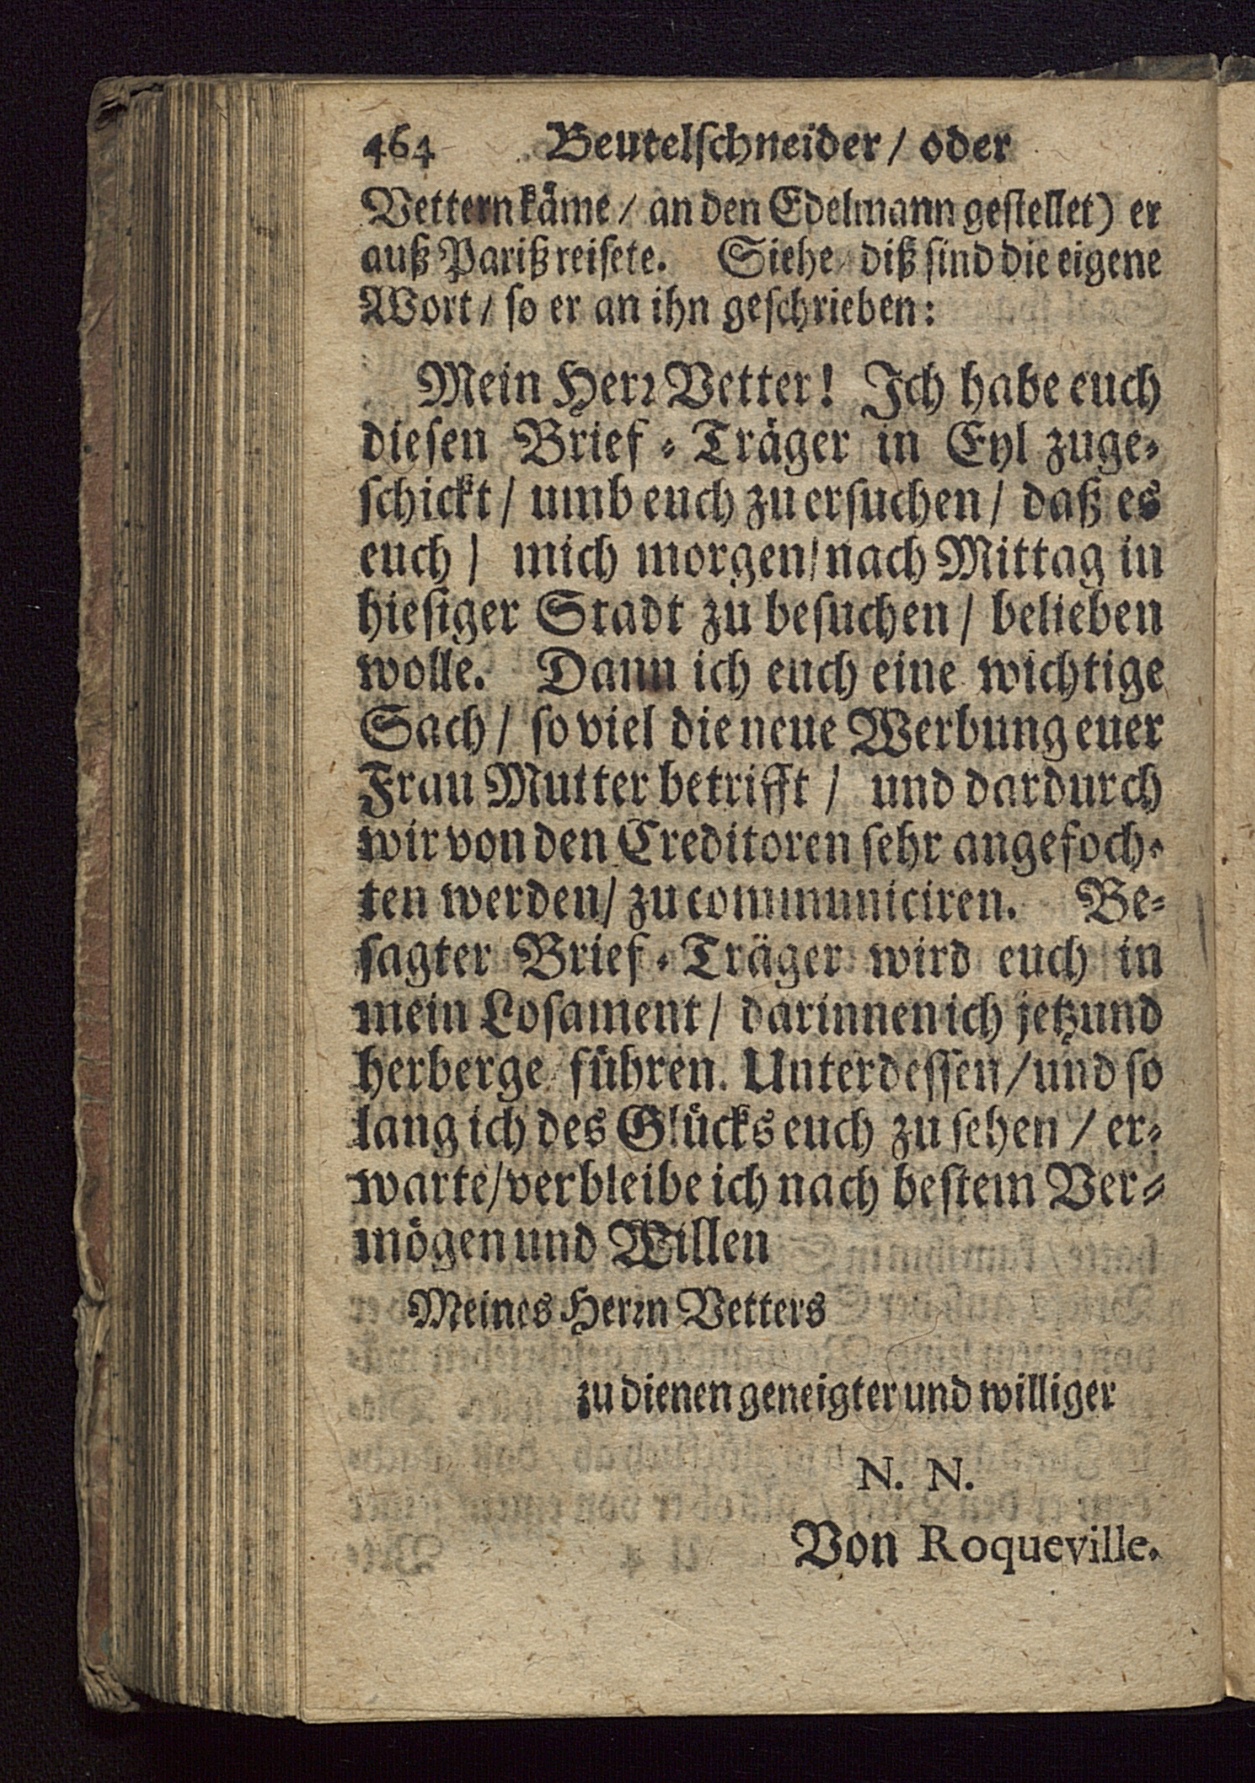 464 Beutelschneider / oder
Vettern käme / an den Edelmann gestellet) er
auß Pariß reisete. Siehe diß sind die eigene
Wort / so er an ihn geschrieben:
Mein Herr Vetter! Ich habe euch
diesen Brief-Träger in Eyl zuge-
schickt / umb euch zu ersuchen / daß es
euch / mich morgen / nach Mittag in
hiesiger Stadt zu besuchen / belieben
wolle. Dann ich euch eine wichtige
Sach / so viel die neue Werbung euer
Frau Mutter betrifft / und dardurch
wir von den Creditoren sehr angefoch-
ten werden / zu communiciren. Be-
sagter Brief-Träger wird euch in
mein Losament / darinnen ich jetzund
herberge / führen. Unterdessen / und so
lang ich des Glücks euch zu sehen / er-
warte / verbleibe ich nach bestem Ver-
mögen und Willen
Meines Herrn Vetters
zu dienen geneigter und williger
N. N.
Von Roqueville.